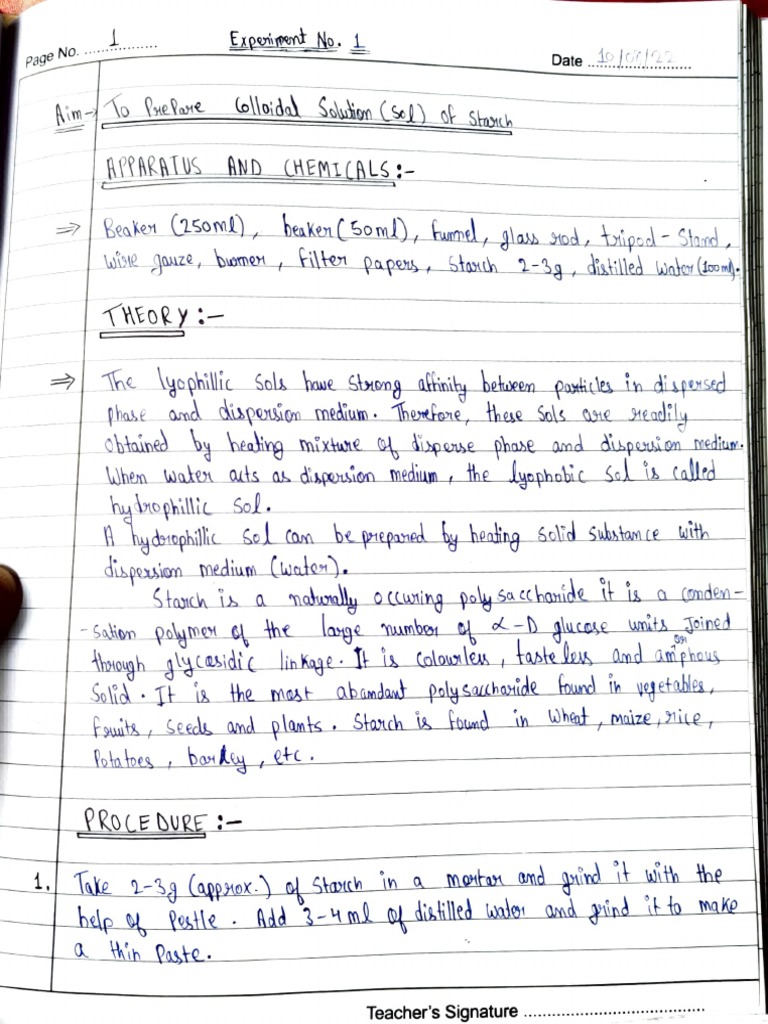 Page No. 1
Experiment No. 1
Date 10/0 /22
Aim→ To Prepare Colloidal Solution (sol) of Starch
APPARATUS AND CHEMICALS:-
⇒ Beaker (250ml), beaker (50ml), funnel, glass rod, tripod-Stand,
wire gauze, burner, filter papers, starch 2-3g, distilled water (100ml).
THEORY:-
⇒ The lyophillic sols have strong affinity between particles in dispersed
phase and dispersion medium. Therefore, these sols are readily
obtained by heating mixture of disperse phase and dispersion medium.
When water acts as dispersion medium, the lyophobic sol is called
hydrophillic sol.
A hydrophillic sol can be prepared by heating solid substance with
dispersion medium (water).
Starch is a naturally occuring polysaccharide it is a conden-
-sation polymer of the large number of α-D glucose units joined
through glycosidic linkage. It is colourless, tasteless and amorphous
Solid. It is the most abandant polysaccharide found in vegetables,
fruits, seeds and plants. Starch is found in wheat, maize, rice,
Potatoes, barley, etc.
PROCEDURE:-
1. Take 2-3g (approx.) of starch in a mortar and grind it with the
help of Pestle. Add 3-4 ml of distilled water and grind it to make
a thin Paste.
Teacher's Signature